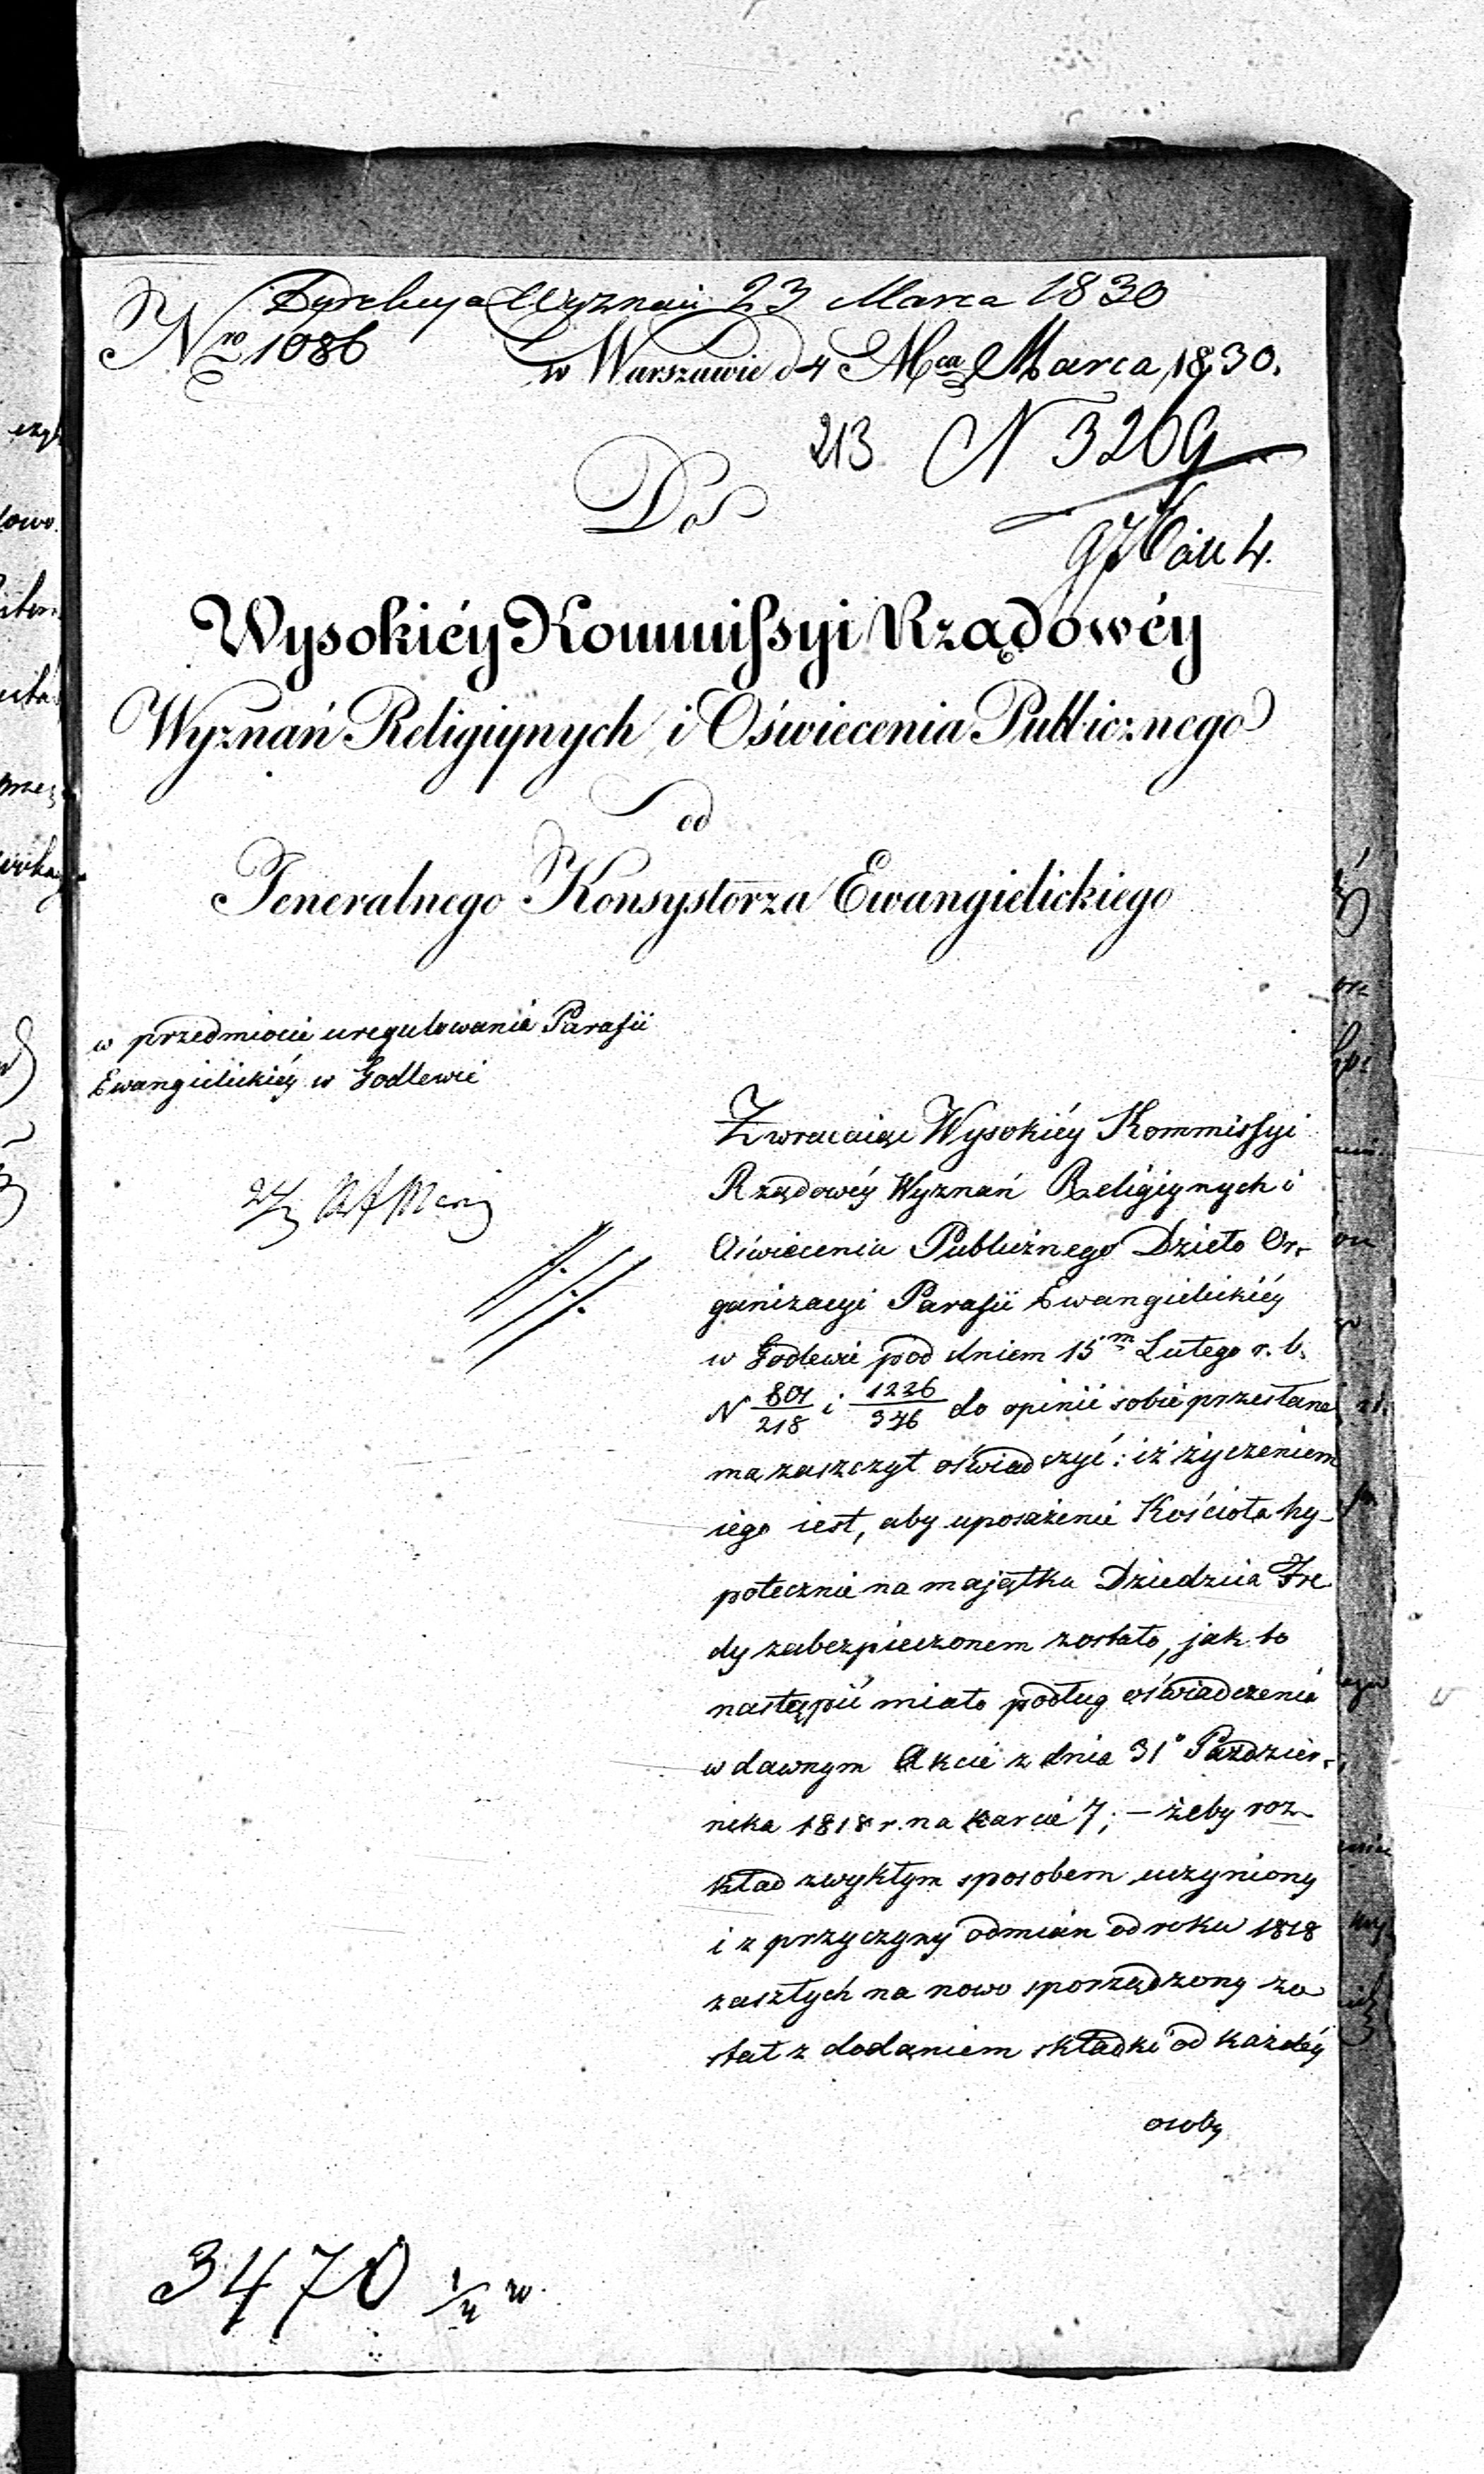 Dyrekcya Wyznań 23 Marca 1830
Nro 1086 w Warszawie d 4 Mca Marca 1830.
213 N 3269
Do
Wysokiéy Kommissyi Rządowéy
Wyznań Religiynych i Oświecenia Publicznego
od
Jeneralnego Konsystorza Ewangielickiego
w przedmiocie uregulowania Parafii
Ewangielickiéy w Godlewie
Zwracaiąc Wysokiéy Kommissyi
Rządowéy Wyznań Religiynych i
Oświecenia Publicznego Dzieło Or-
ganizacyi Parafii Ewangielickiéy
w Godlewie pod dniem 15m Lutego r. b.
N 801/218 i 1226/376 do opinii sobie przesłane
ma zaszczyt oświadczyć: iż życzeniem
iego iest, aby uposażenie Kościoła hy-
potecznie na majątku Dziedzica Fre
dy zabezpieczonem zostało, jak to
nastąpić miało podług oświadczenia
w dawnym Akcie z dnia 31° Paździer-
nika 1818 r. na karcie 7; – żeby roz-
kład zwykłym sposobem uczyniony
i z przyczyny odmian od roku 1818
zaszłych na nowo sporządzony zo
stał z dodaniem składki od każdéy
osoby
3470 1/4 w